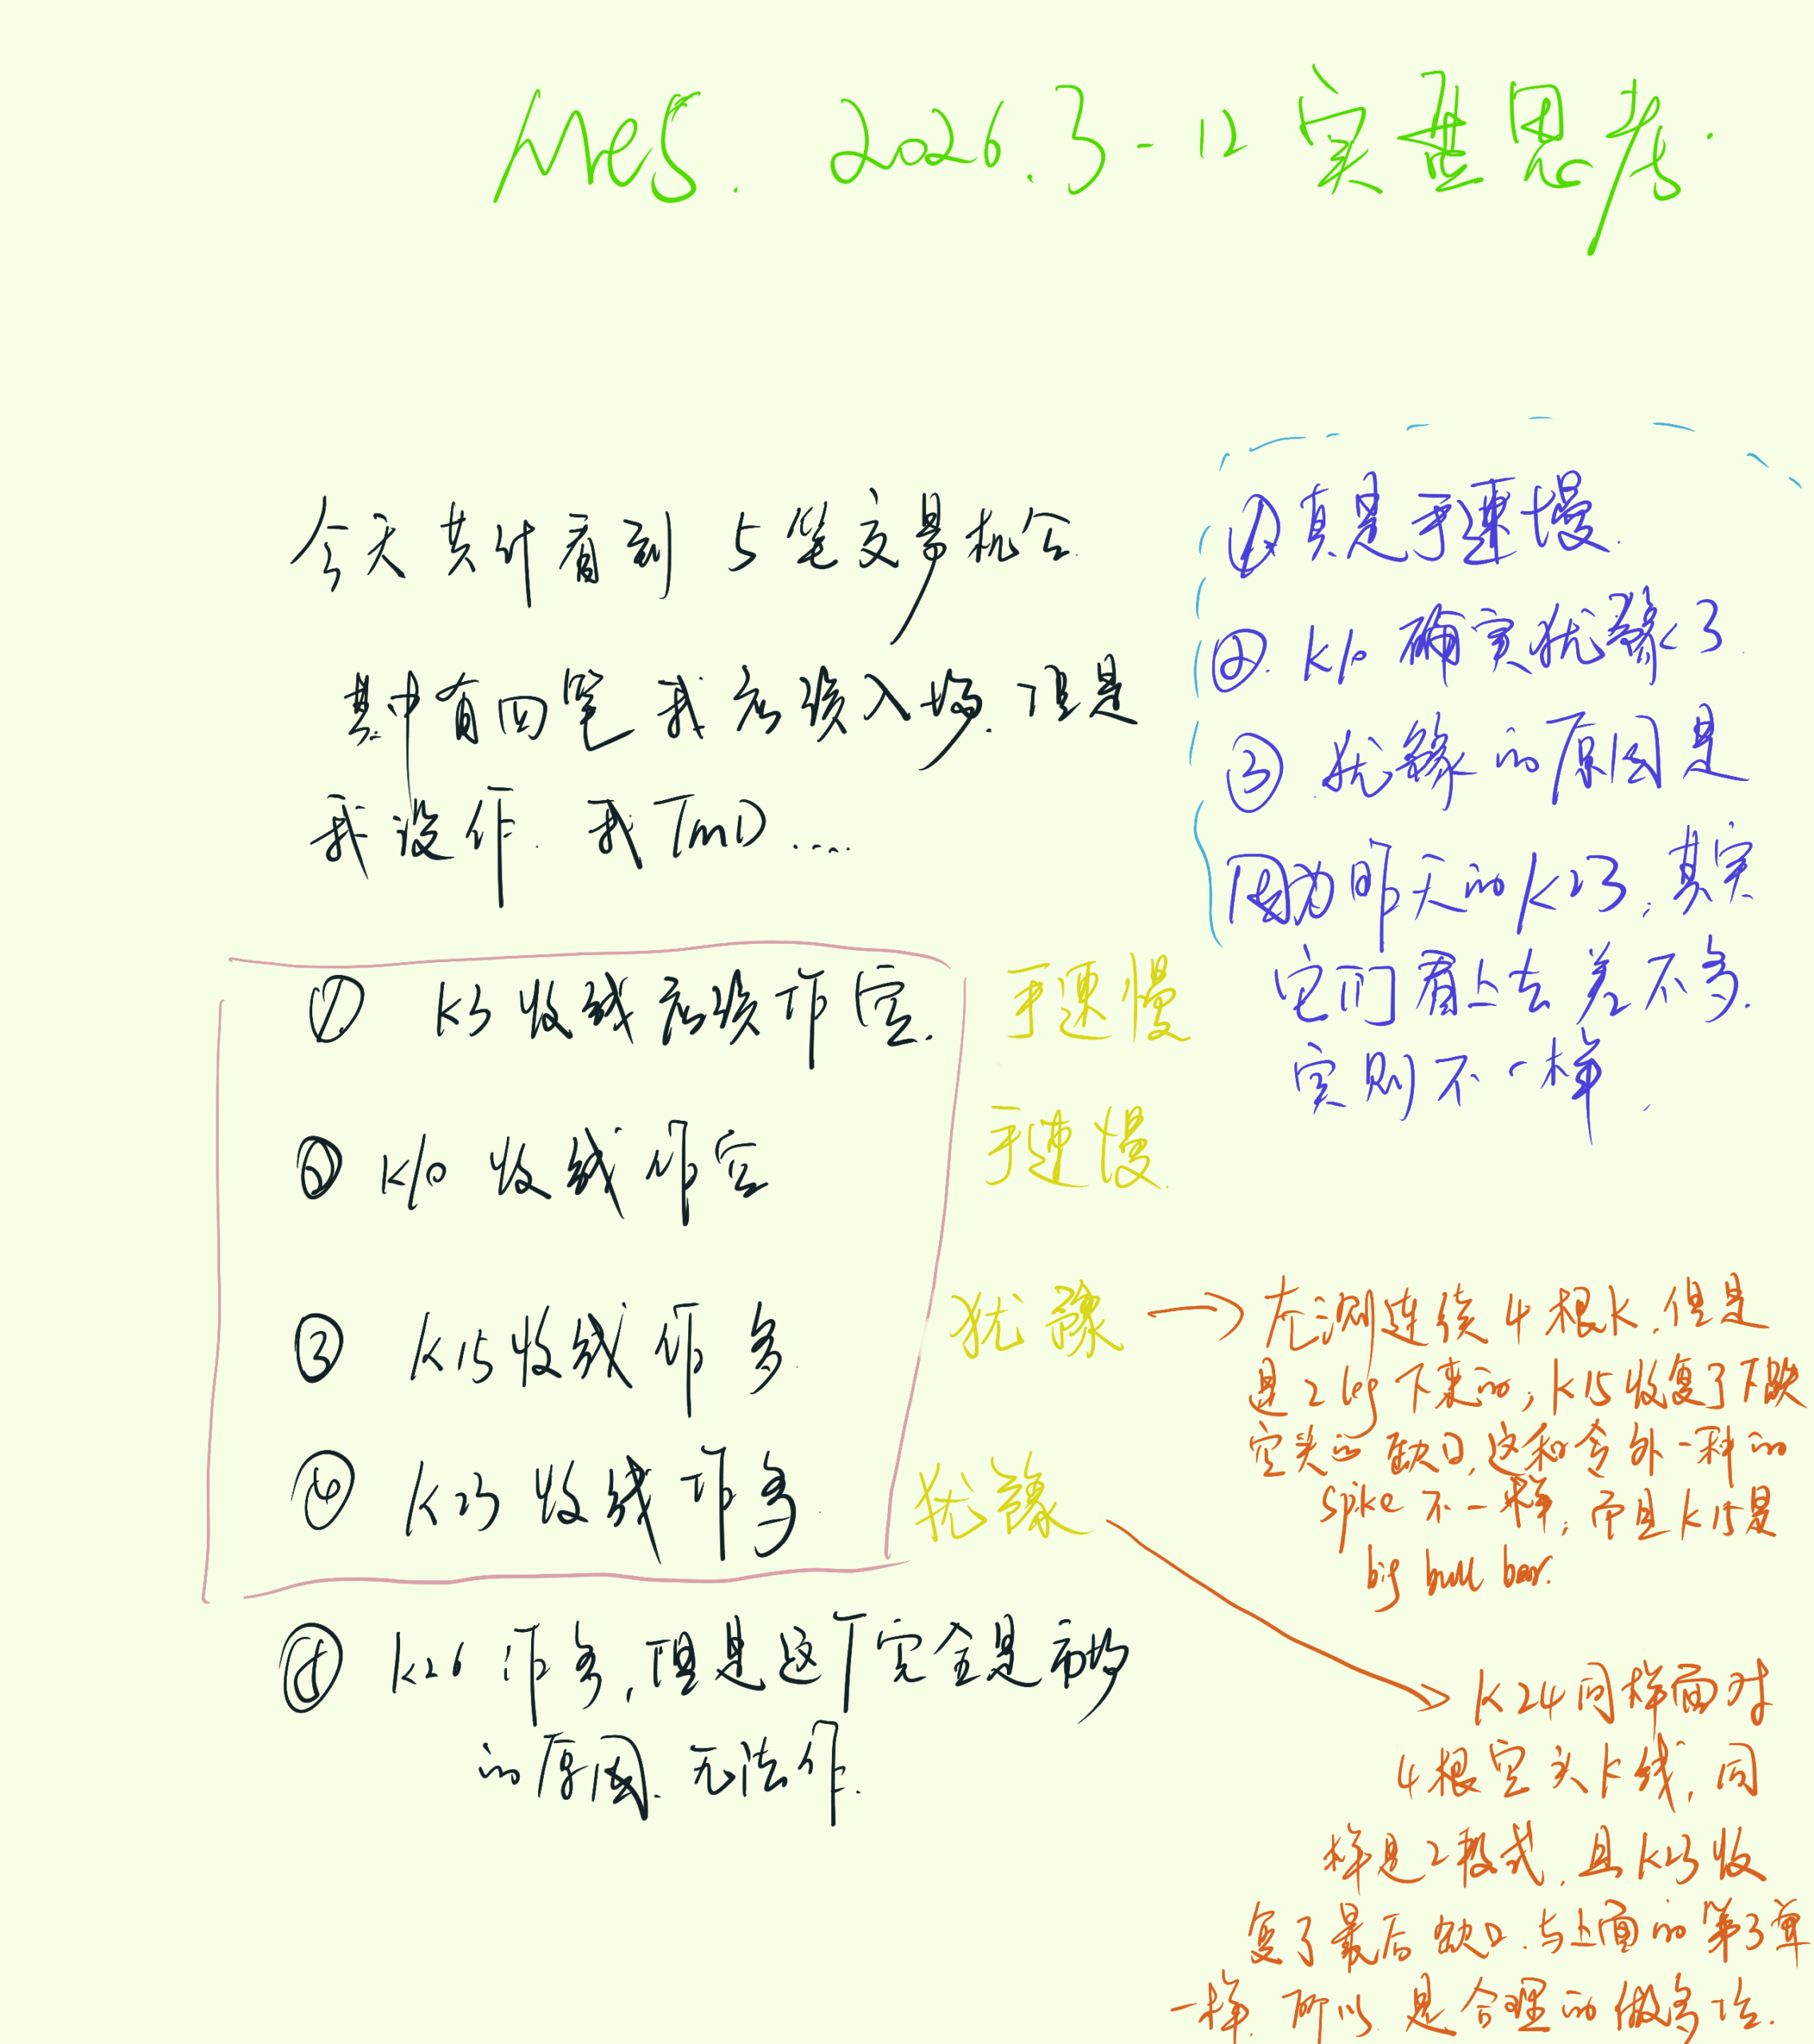 MES. 2026.3-12 实盘思考.
今天共计看到 5笔交易机会.
其中有四笔我应该入场.但是
我没作. 我TMD....
① K3收线应该作空. 手速慢
② K10 收线作空 手速慢.
③ K15收线作多 犹豫
④ K23收线作多. 犹豫
⑤ K26 作多,但是这个完全是市场
的原因.无法作.
① 真是手速慢.
②. K10 确实犹豫了.
③ 犹豫的原因是
因为昨天的K23,其实
它们看上去差不多.
实则不一样.
左测连续4根K.但是
是2leg下来的,K15收复了下跌
空头的缺口,这和令外一种的
spike 不一样,而且K15是
big bull bar.
K24同样面对
4根空头K线,同
样是2段式,且K23收
复了最后缺口.与上面的第3单
一样.所以是合理的做多位.